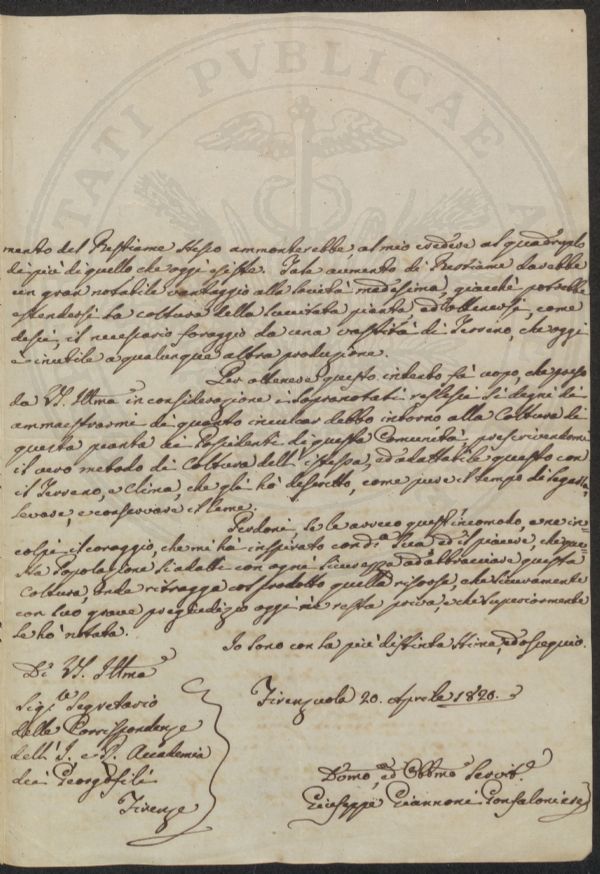 PVBLICAE
mento del Bestiame stesso ammonterebbe, al mio credere al quadruplo
di più di quello che oggi esiste. Tale aumento di Bestiame darebbe
un gran notabile vantaggio alla Società medesima, giacchè potrebbe
estendersi la coltura della succitata pianta, ed ottenersi, come
desia, il necessario foraggio da una vastità di Terreno, che oggi
è inutile a qualunque altra produzione.
Per ottenere questo intento fà uopo, che preso
da VS. Illma in considerazione i sopranotati reflessi si degni di
ammaestrarmi di quanto inculcar debbo intorno alla Coltura di
questa pianta ai Possidenti di questa Comunità, prescrivendomi
il vero metodo di Coltura dell'istessa, ed adattabile questo con
il Terreno, e Clima, che gli hò descritto, come pure il tempo di segarla,
levare, e conservare il seme.
Perdoni, se le arreco quest'incomodo, e ne in-
colpi il coraggio, che mi hà inspirato ed il piacere, che que-
sta Popolazione si adatti con ogni sicurezza ad abbracciare questa
Coltura, onde ritragga col prodotto quelle risorse, che sicuramente
con suo grave pregiudizio oggi ne resta priva, e che superiormente
le hò notata.
Io sono con la più distinta stima, ed ossequio.
Di VS. Illma
Sigr. Segretario
delle Corrispondenze
dell'I. e R. Accademia
dei Georgofili
Firenze
Firenzuola 20. Aprile 1820.
Dvmo, ed Obbmo Servitr.
Giuseppe Giannoni Gonfaloniere